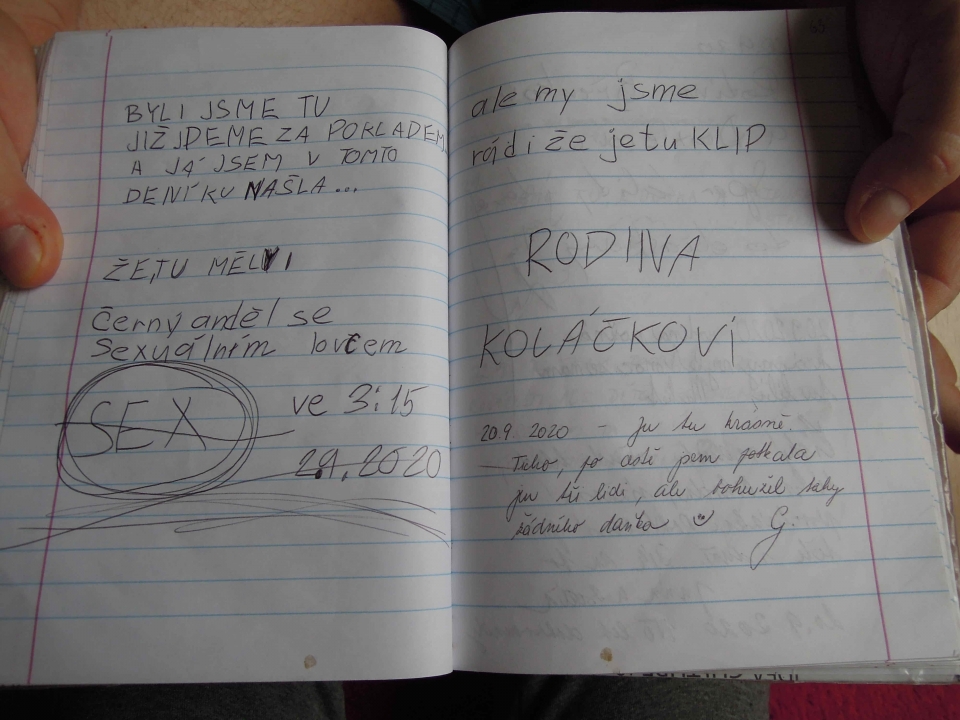 BYLI JSME TU
JIŽ JDEME ZA POKLADEM
A JÁ JSEM V TOMTO
DENÍKU NAŠLA...
ŽE,TU MĚLI
Černý anděl se
sexuálním lovcem
SEX
ve 3:15
2.9.2020
ale my jsme
rádi že je tu KLIP
RODINA
KOLÁČKOVI
20.9. 2020 - je tu krásně.
Ticho, po cestě jsem potkala
jen tři lidi, ale bohužel taky
žádného daňka ☺ G.